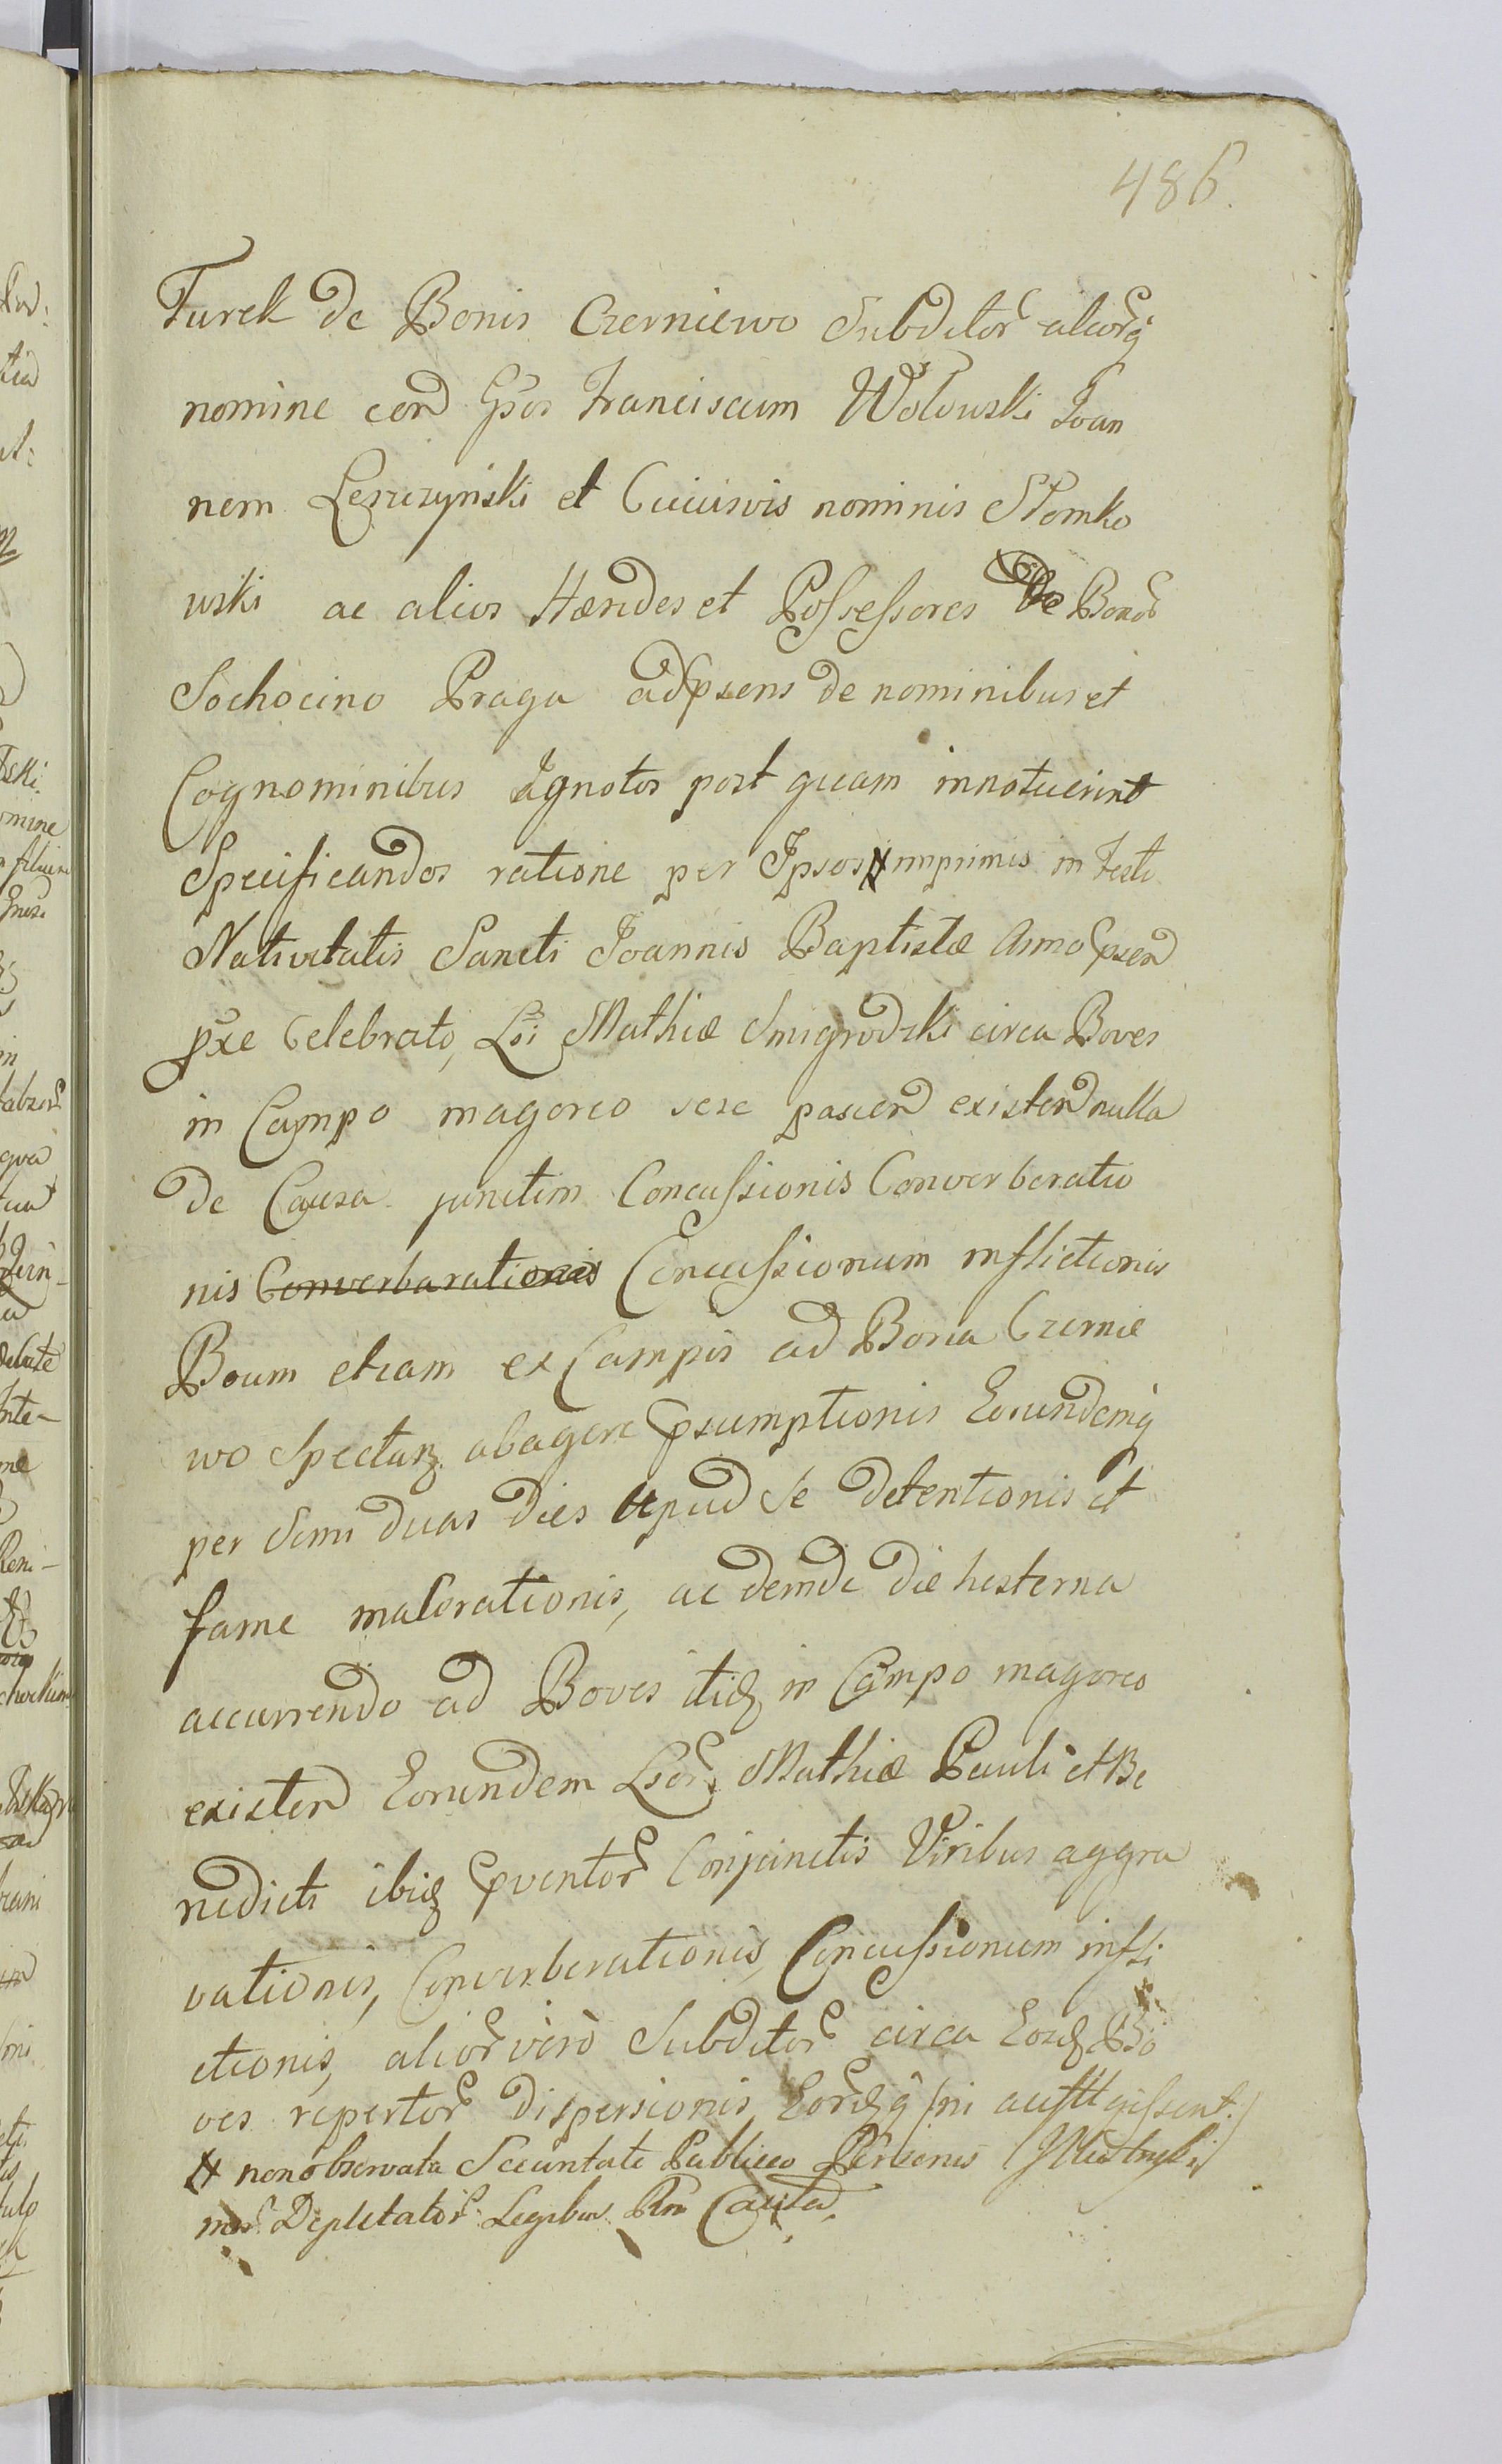 486.
Turek de Bonis Czerniewo Subditor aliorq
nomine con Gsos Franciscum Wołowski Joan
nem Leszczyński et Cuiusvis nominis Słomko
wski ac alios Hæredes et Possessores De Bonor
Sochocino Praga adpsens de nominibus et
Cognominibus Ignotos post quam innotuerint
Specificandos ratione per Ipsos # imprimis in Festo
Nativitatis Sancti Joannis Baptistæ Anno psen
pxe Celebrato, Lsi Mathiæ Smigrodzki circa Boves
in Campo magoreo sese pascen existen nulla
de Causa junctim Concussionis Converberatio
nis Converbarationis Concussionum inflictionis
Boum etiam ex Campis ad Bona Czernie
wo Spectan abagere psumptionis Eorundemq
per Semi duas dies Apud se detentionis et
fame malorationis, ac deinde die hesterna
accurrendo ad Boves itid in Campo magoreo
existen Eorundem Lsor Mathiæ Pauli et Be
nedicti ibid pventor Conjunctis Viribus aggra
vationis, Converberationis, Concussionum infli
ctionis, alior vero Subditor circa Eosd Bo
ves repertor dispersionis, Eordq
# non observata Securitate Publica Personis
Deputator Legibus Cauta